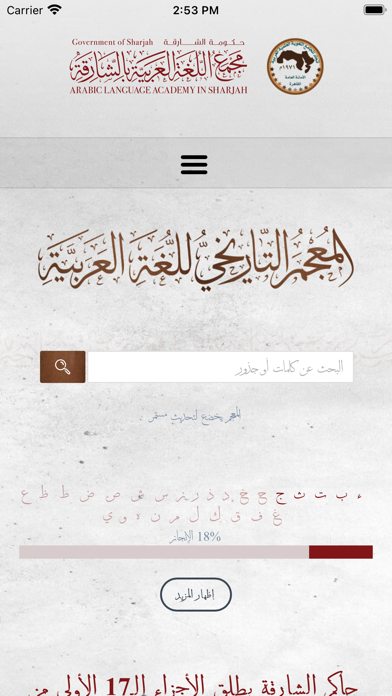 Carrier 2:53 PM
Government of Sharjah حكومة الشارقة
مجمع اللغة العربية بالشارقة
ARABIC LANGUAGE ACADEMY IN SHARJAH
١٩٧١م
المُعْجَمُ التَّارِيخِيُّ لِلُّغَةِ العَرَبِيَّةِ
البحث عن كلمات أو جذور
المعجم يخضع لتحديث مستمر .
ء ب ت ث ج ح خ د ذ ر ز س ش ص ض ط ظ ع
غ ف ق ك ل م ن ه و ي
18% الإنجاز
إظهار المزيد
حاكم الشارقة يطلق الأجزاء الـ17 الأولى من